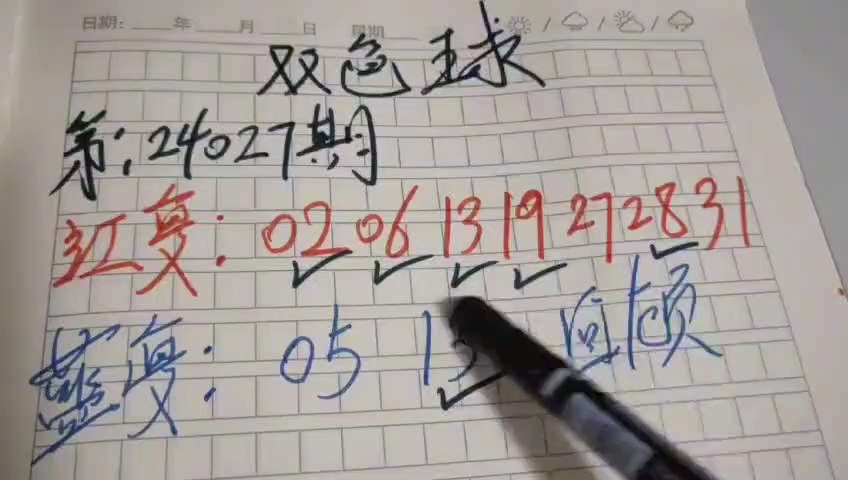 日期: ____年____月____日 星期____ / / /
双色球
第:24027期
红复: 02 06 13 19 27 28 31
蓝复: 05 13 回顾